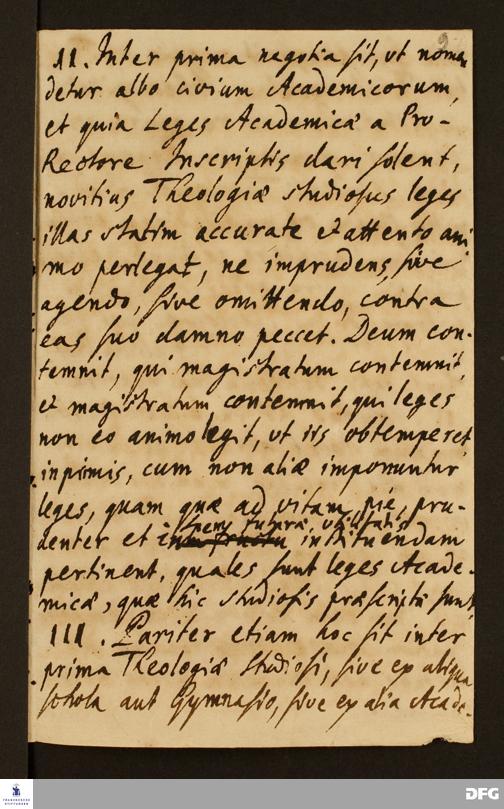 9
II. Inter prima negotia sit, ut nomen
detur albo civium Academicorum,
et quia Leges Academicæ a Pro-
Rectore Inscriptis dari solent,
novitius Theologiæ studiosus leges
illas statim accurate & attento ani
mo perlegat, ne imprudens, sive
agendo, sive omittendo, contra
eas suo damno peccet. Deum con-
temnit, qui magistratum contemnit,
& magistratum contemnit, qui leges
non eo animo legit, ut iis obtemperet,
inprimis, cum non aliæ imponuntur
leges, quam quæ ad vitam, pie, pru-
spem futuræ utilitatis
denter et instituendam
pertinent, quales sunt leges Acade-
micæ, quæ hic studiosis præscriptæ sunt.
III. Pariter etiam hoc sit inter
prima Theologiæ Studiosi, sive ex aliqua
schola aut Gymnasio, sive ex alia Acade-
FRANCKESCHE
STIFTUNGEN
DFG